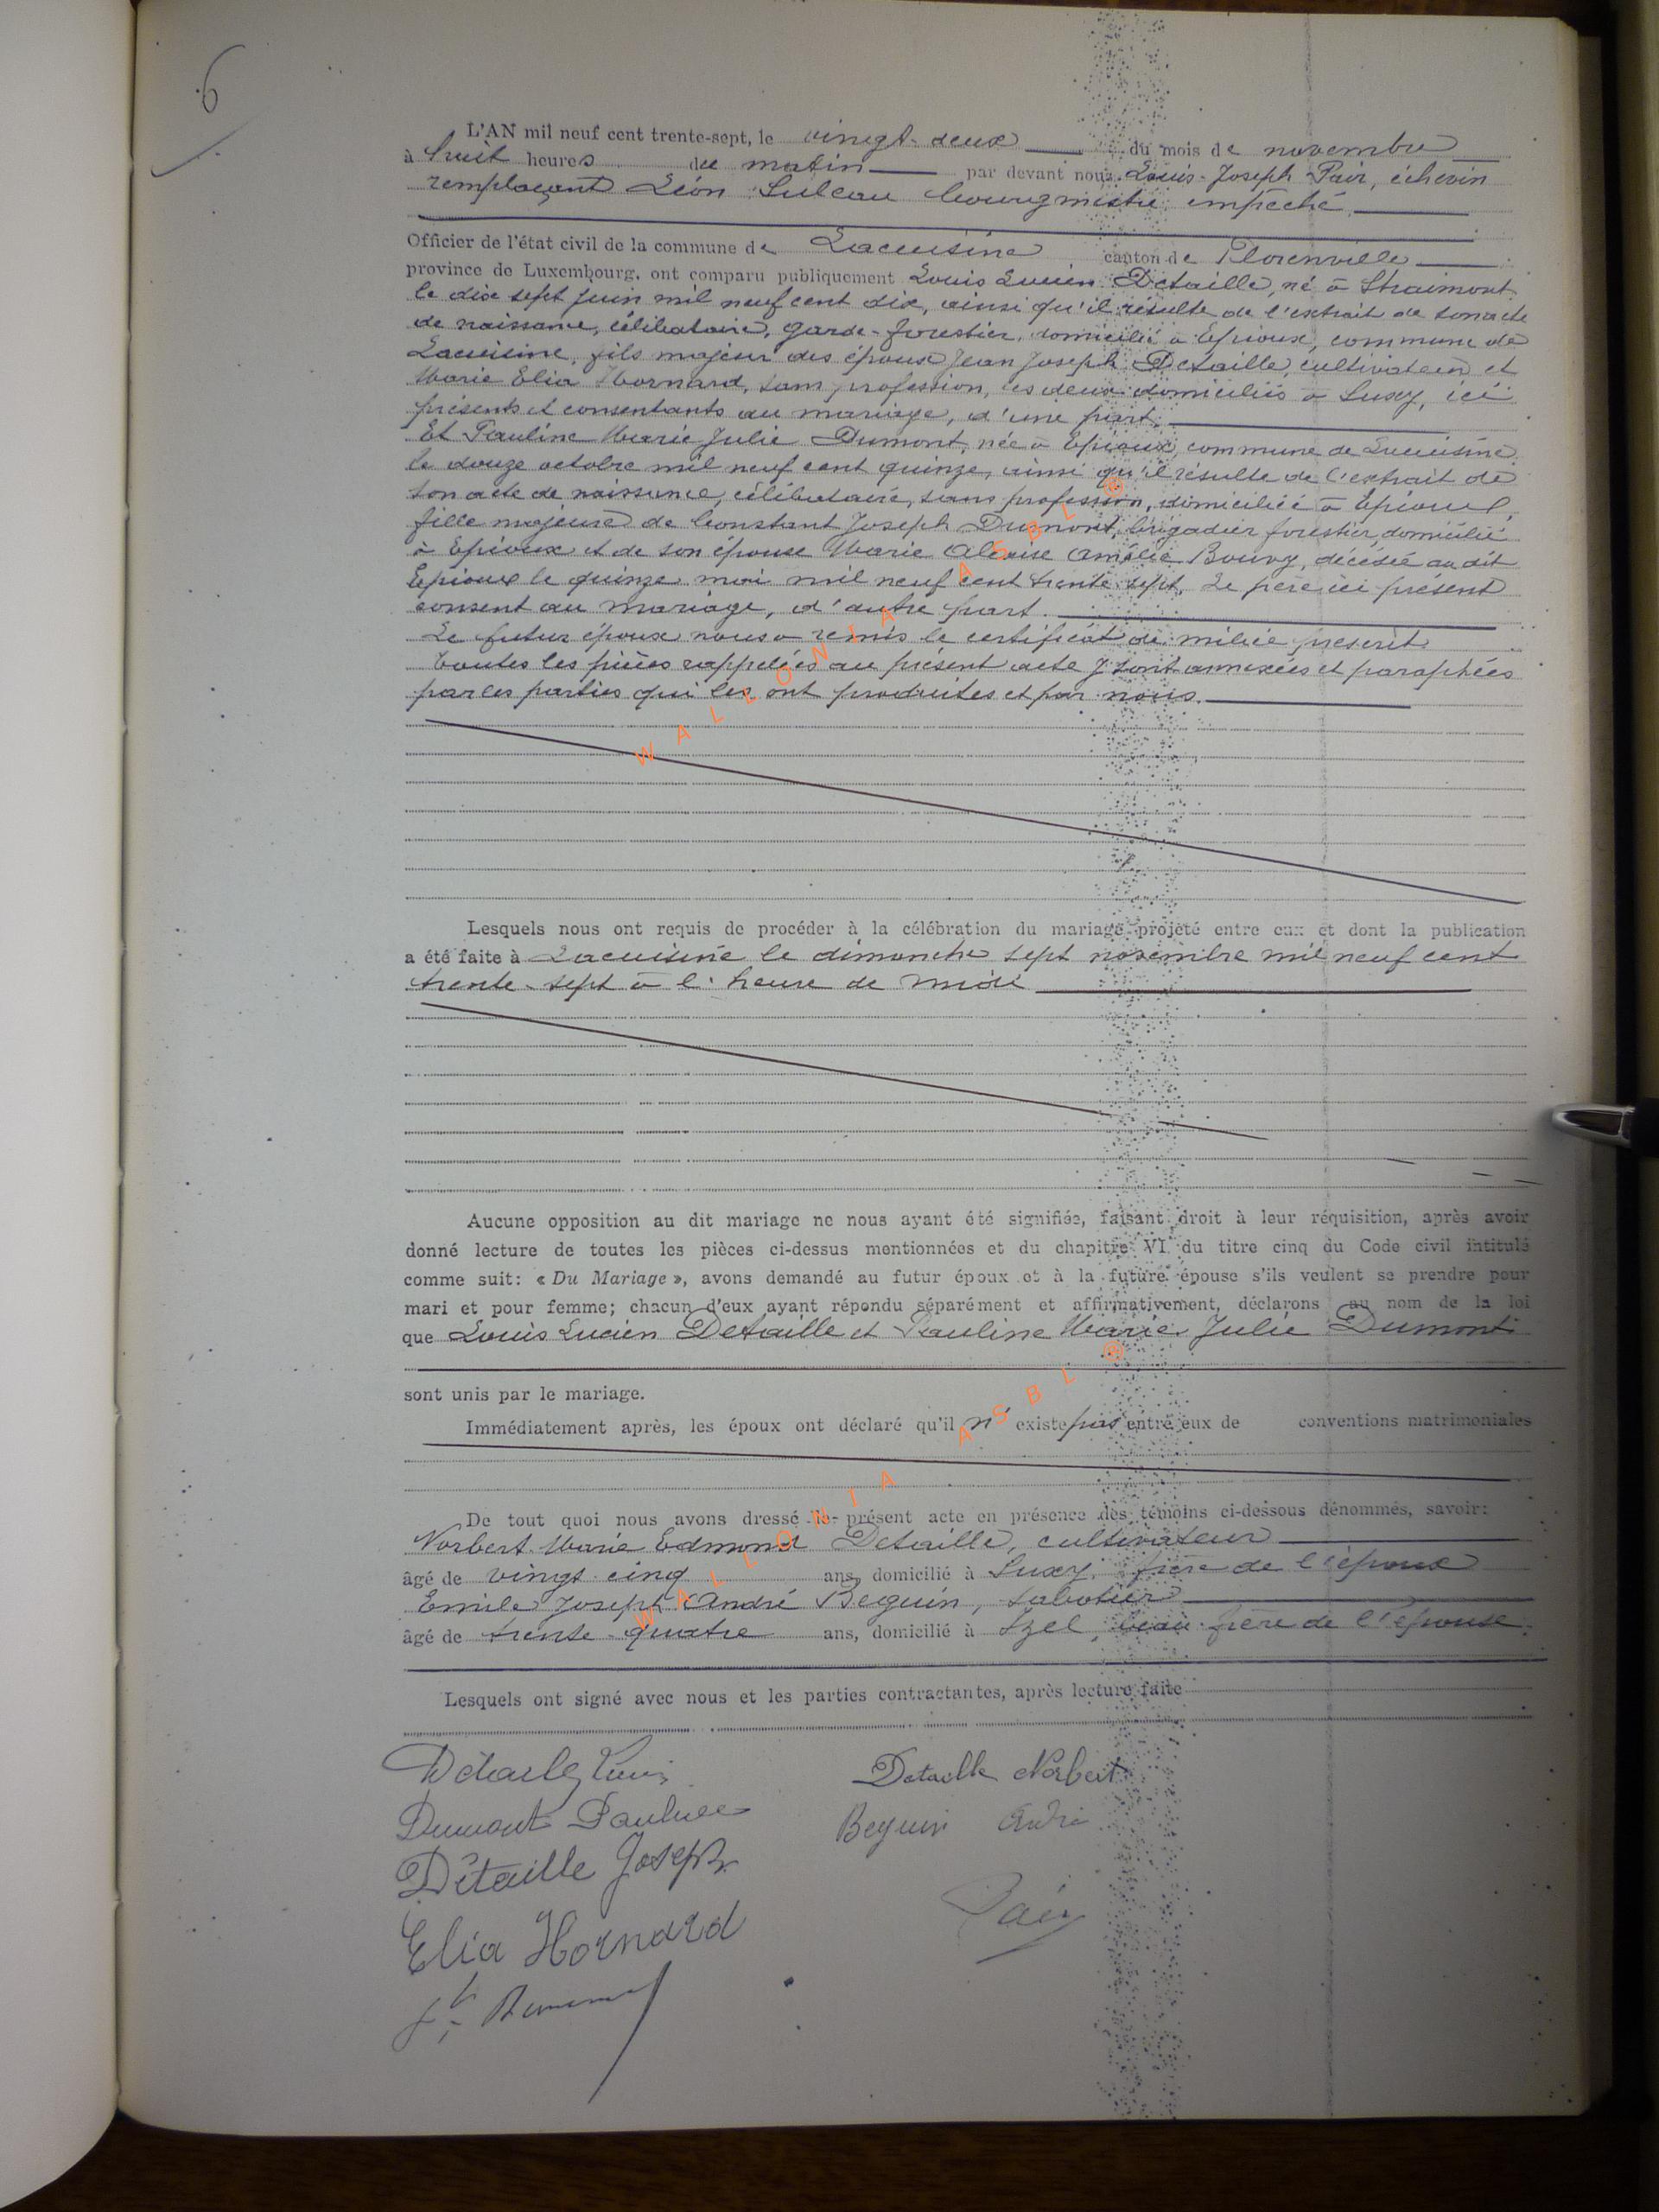 6
L'AN mil neuf cent trente-sept, le vingt-deux du mois de novembre
à huit heures du matin par devant nous Louis-Joseph Pair, échevin
remplaçant Léon Suleau bourgmestre empêché
Officier de l'état civil de la commune de Lacuisine canton de Florenville
province de Luxembourg, ont comparu publiquement Louis Lucien Detaille, né à Straimont
le dix sept juin mil neuf cent dix, ainsi qu'il résulte de l'extrait de son acte
de naissance, célibataire, garde-forestier, domicilié à Epioux, commune de
Lacuisine, fils majeur des époux Jean Joseph Detaille, cultivateur et
Marie Elia Hornard, sans profession, les deux domiciliés à Suxy, ici
présents et consentants au mariage, d'une part.
Et Pauline Marie Julie Dumont, née à Epioux, commune de Lacuisine
le douze octobre mil neuf cent quinze, ainsi qu'il résulte de l'extrait de
son acte de naissance, célibataire, sans profession, domiciliée à Epioux,
fille majeure de Constant Joseph Dumont, brigadier forestier, domicilié
à Epioux et de son épouse Marie Alexise Amélie Bouvy, décédée au dit
Epioux le quinze mai mil neuf cent trente sept. Le père ici présent
consent au mariage, d'autre part.
Le futur époux nous a remis le certificat de milice prescrit
Toutes les pièces rappelées au présent acte y sont annexées et paraphées
par les parties qui les ont produites et par nous.
WALLONIA ASBL ®
Lesquels nous ont requis de procéder à la célébration du mariage projeté entre eux et dont la publication
a été faite à Lacuisine le dimanche sept novembre mil neuf cent
trente-sept à l'heure de midi
Aucune opposition au dit mariage ne nous ayant été signifiée, faisant droit à leur réquisition, après avoir
donné lecture de toutes les pièces ci-dessus mentionnées et du chapitre VI du titre cinq du Code civil intitulé
comme suit: « Du Mariage », avons demandé au futur époux et à la future épouse s'ils veulent se prendre pour
mari et pour femme; chacun d'eux ayant répondu séparément et affirmativement, déclarons au nom de la loi
que Louis Lucien Detaille et Pauline Marie Julie Dumont
sont unis par le mariage.
Immédiatement après, les époux ont déclaré qu'il n'existe pas entre eux de conventions matrimoniales
De tout quoi nous avons dressé le présent acte en présence des témoins ci-dessous dénommés, savoir:
Norbert Marie Edmond Detaille, cultivateur
âgé de vingt cinq ans, domicilié à Suxy, frère de l'époux
Emile Joseph André Beguin, sabotier
âgé de trente-quatre ans, domicilié à Izel, beau-frère de l'épouse.
WALLONIA ASBL ®
Lesquels ont signé avec nous et les parties contractantes, après lecture faite
Detaille Louis Detaille Norbert
Dumont Pauline Beguin André
Détaille Joseph
Pair
Elia Hornard